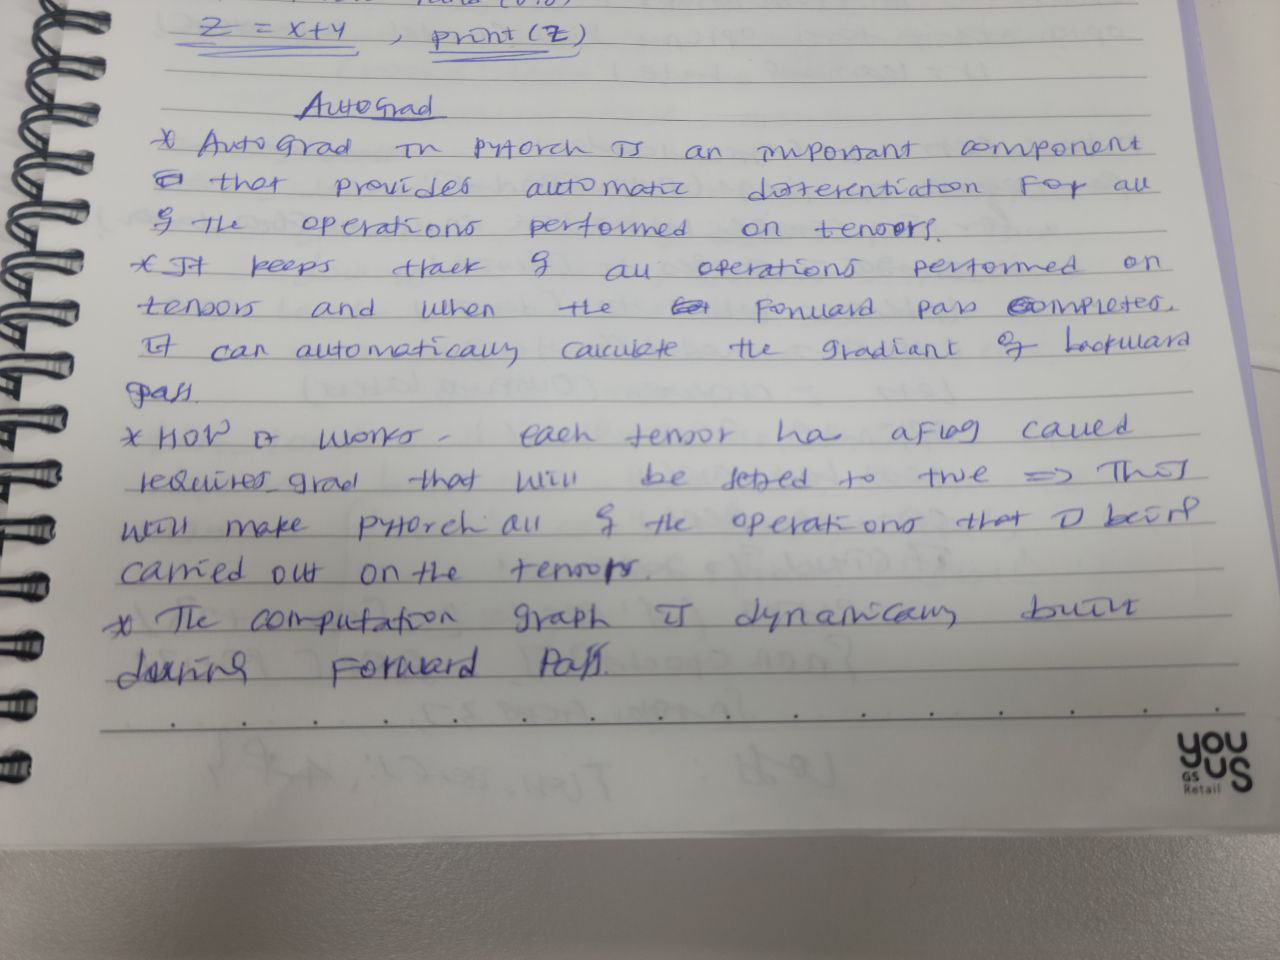 Z = x+y , print(Z)
AutoGrad
* AutoGrad in Pytorch is an important component
that provides automatic differentiation For all
of the operations performed on tensors.
* It keeps track of all operations performed on
tensors and when the forward pass completes.
It can automatically calculate the gradiant of backward
pass.
* How it works - each tensor has a Flag called
requires_grad that will be seted to true => This
will make Pytorch all of the operations that is being
carried out on the tensors.
* The computation graph is dynamically built
during Forward Pass.
you
US
GS
Retail